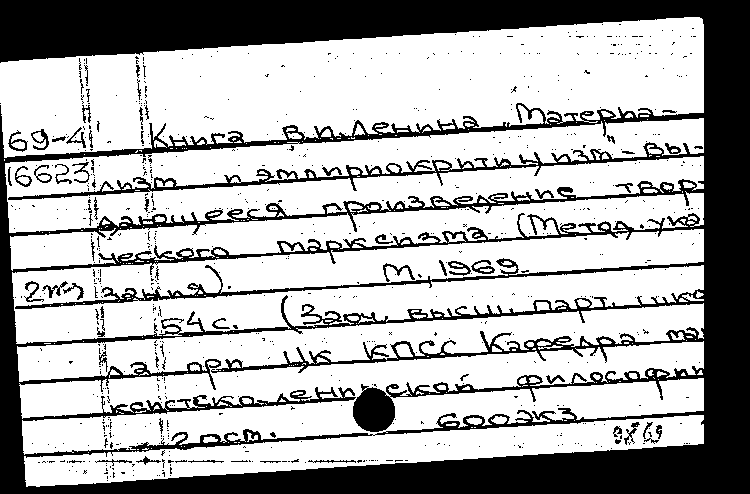 69-4 Книга В.И.Ленина „Материа-
16623 лизм и эмпириокритицизм" - вы-
дающееся произведение твор-
ческого марксизма. (Метод. ука
зания). М., 1969.
54 с. (Заоч. высш. парт. шко
ла при ЦК КПСС Кафедра мар
ксистско-ленинской философии
2 ост. 600экз.
9X69